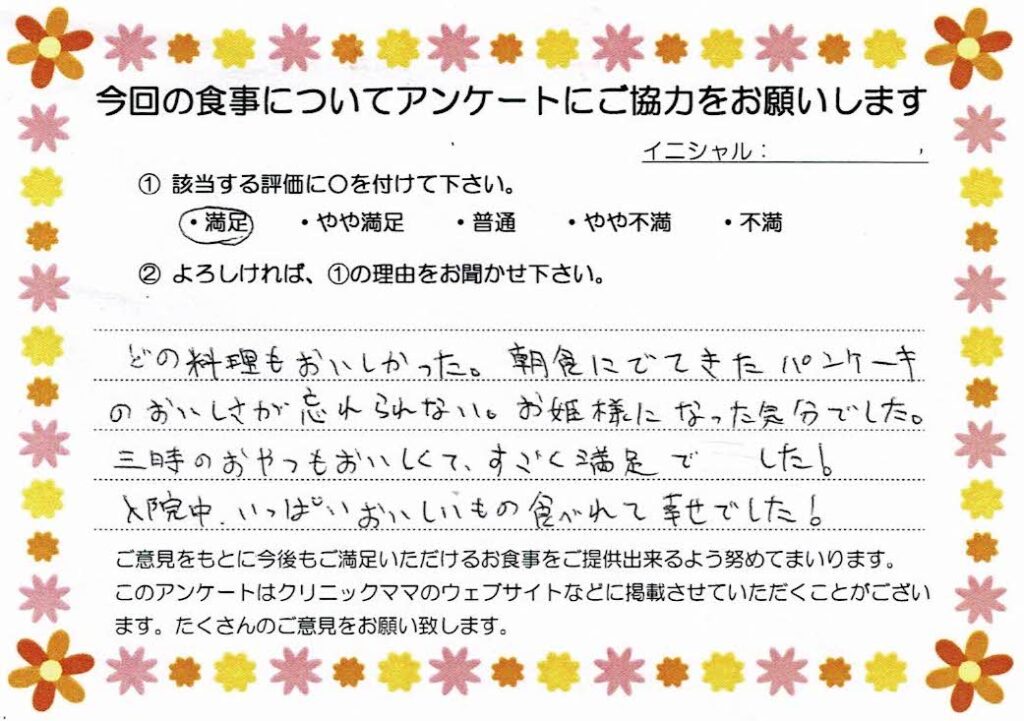 今回の食事についてアンケートにご協力をお願いします
イニシャル：
① 該当する評価に〇を付けて下さい。
・満足 ・やや満足 ・普通 ・やや不満 ・不満
② よろしければ、①の理由をお聞かせ下さい。
どの料理もおいしかった。朝食にでてきたパンケーキ
のおいしさが忘れられない。お姫様になった気分でした。
三時のおやつもおいしくて、すごく満足でした!
入院中、いっぱいおいしいもの食べれて幸せでした!
ご意見をもとに今後もご満足いただけるお食事をご提供出来るよう努めてまいります。
このアンケートはクリニックママのウェブサイトなどに掲載させていただくことがござい
ます。たくさんのご意見をお願い致します。